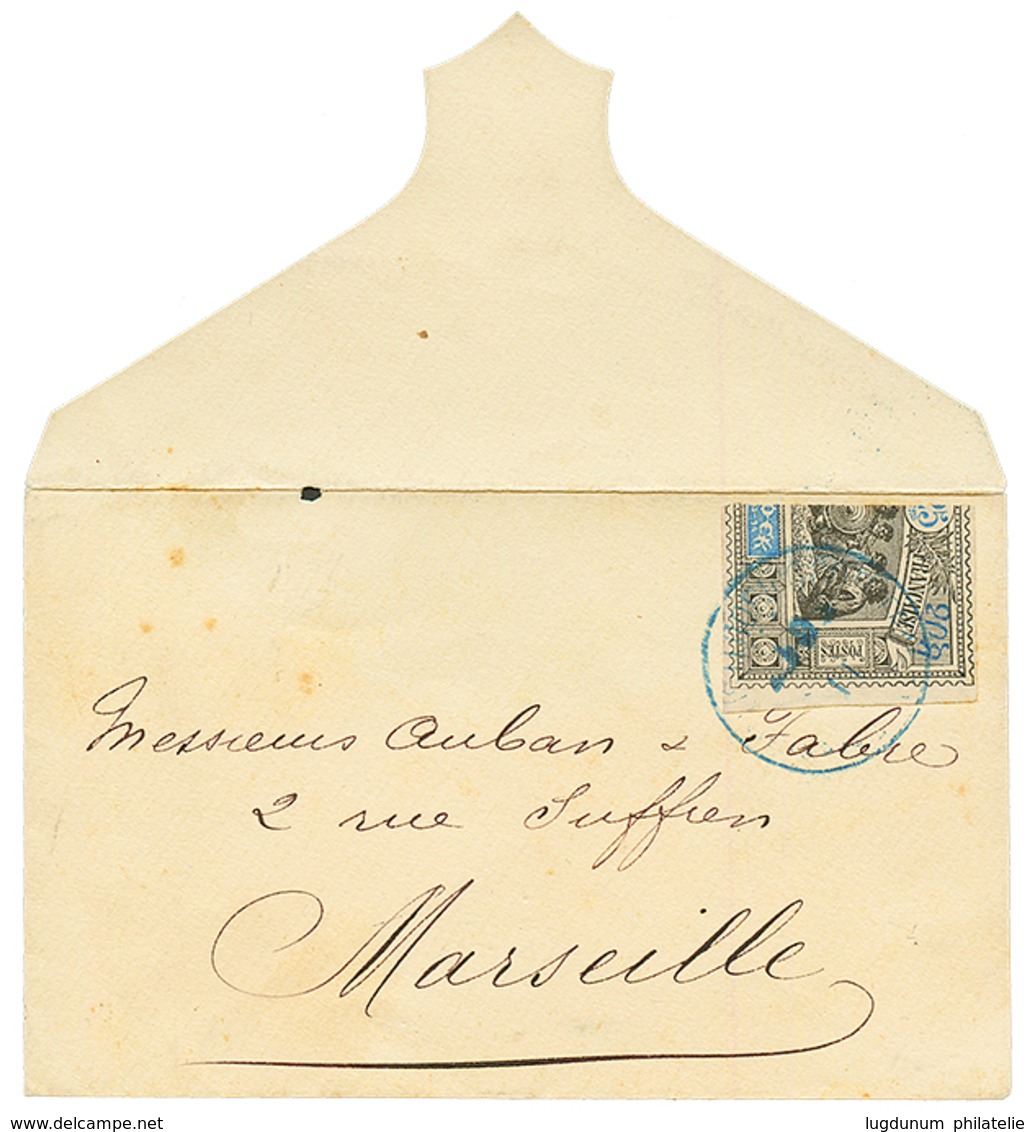 5
FRANÇAISE
POSTES
Messieurs Auban & Fabre
2 rue Suffren
Marseille
www.delcampe.net
lugdunum philatelie